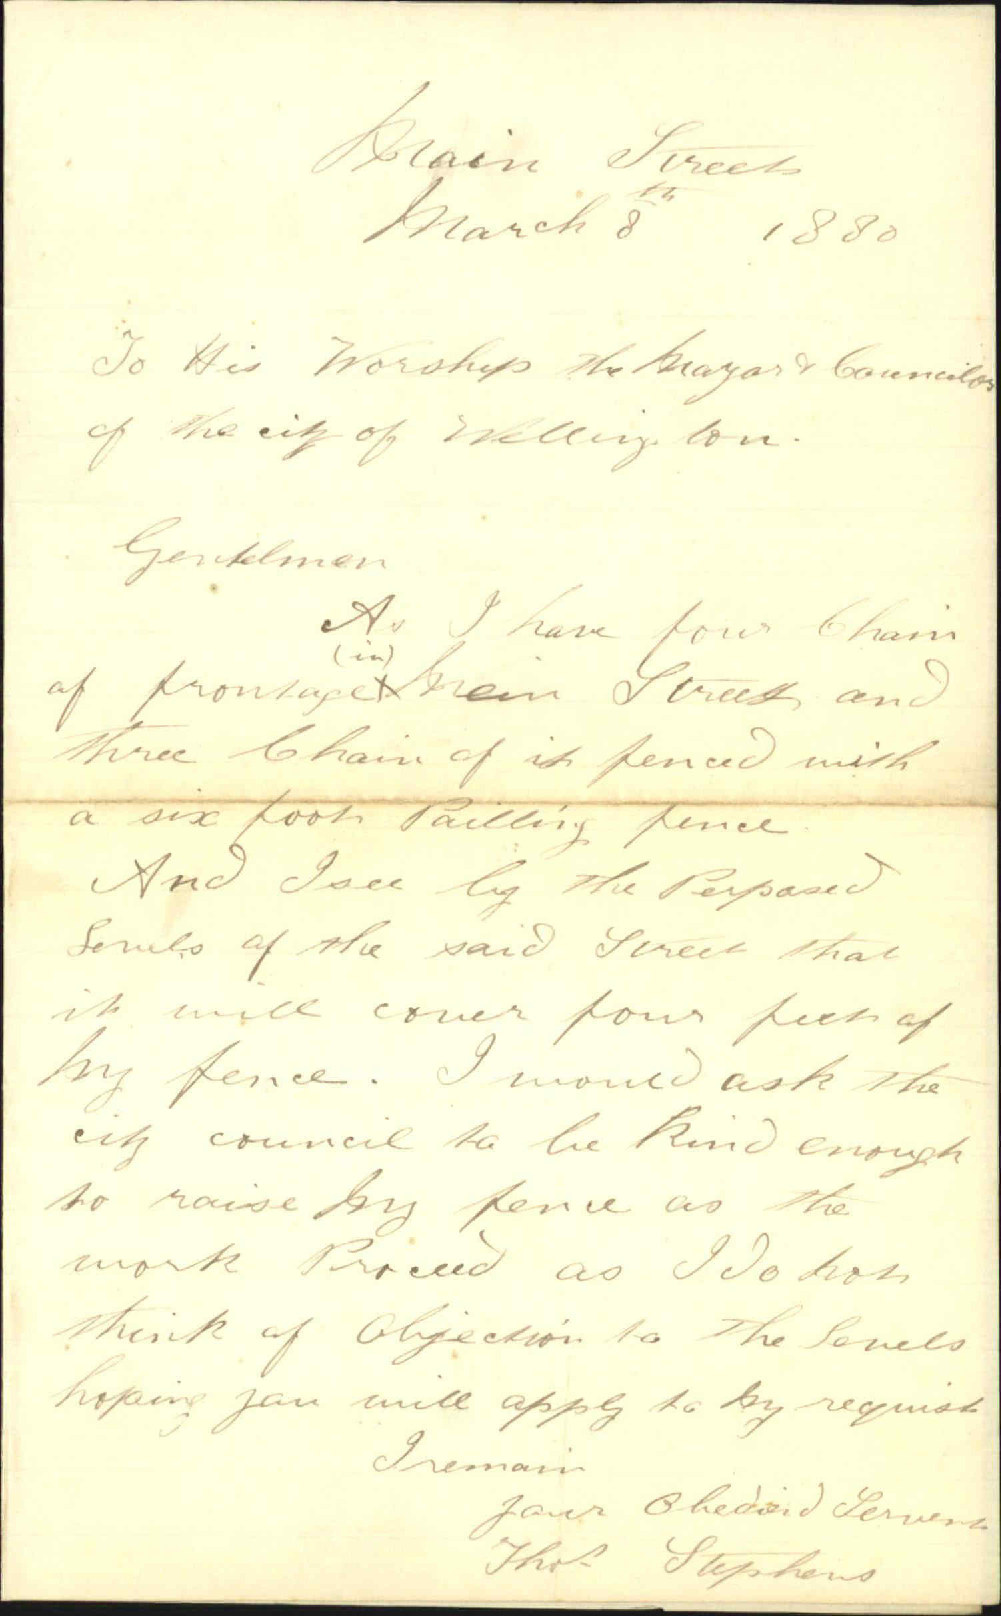 Main Street
March 8th 1880
To His Worship the Mayor & Councilors
of the city of Wellington.
Gentelmen
As I have four Chain
(in)
of frontage Mein Street and
three Chain of it fenced with
a six foot Pailling fence
And I see by the Perposed
Levels of the said Street that
it will cover four feet of
My fence. I would ask the
city council to be Kind enough
to raise My fence as the
work Proceed as I do not
think of Objection to the Levels
hoping you will apply to My requist
I remain
your Obediend Servent
Thos Stephens